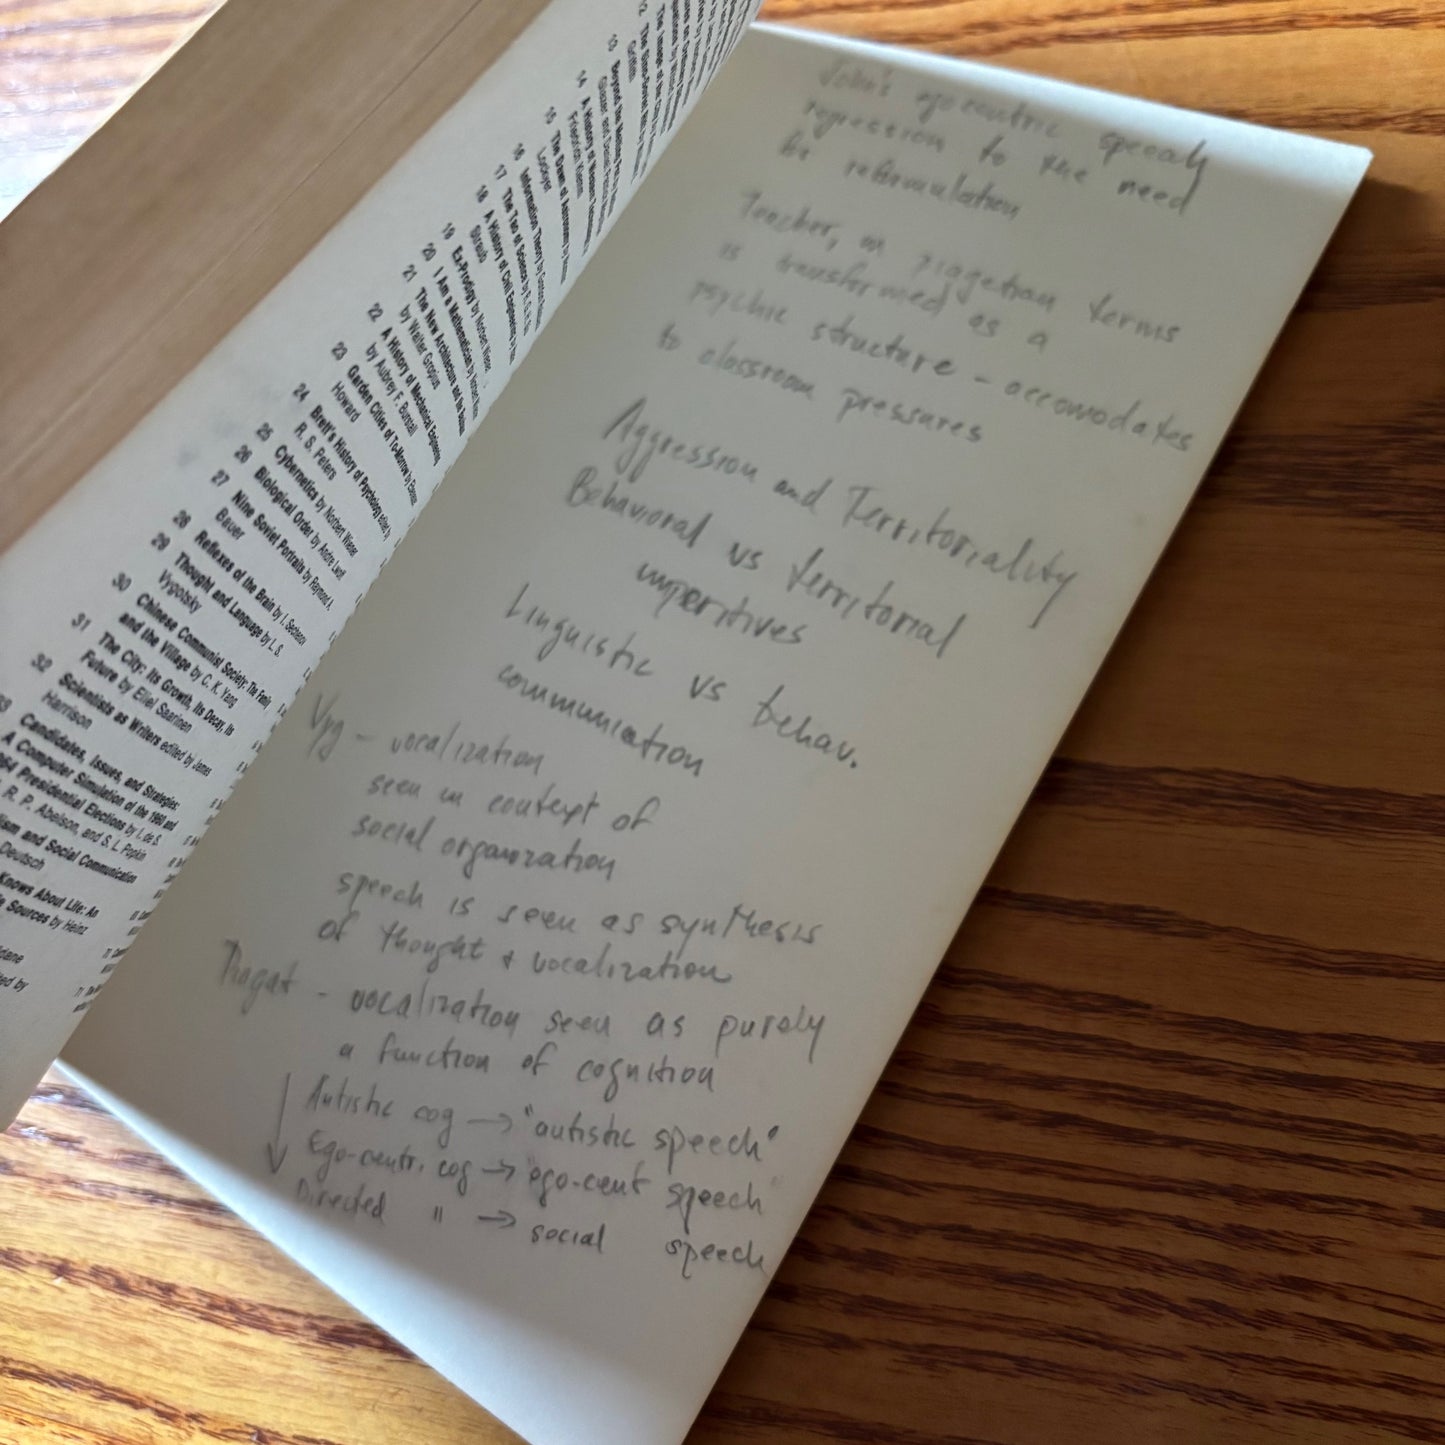 12 The Stina-Bened
Griffith
13 Beyond the Melting Pot by
Glazer and Daniel Patrick
14 A History of Western Technology
Friedrich Klemm
15 The Dawn of Astronomy by
Lockyer
16 Information Theory by Gordon
17 The Tao of Science by R. G. H. Siu
18 A History of Civil Engineering
Straub
19 Ex-Prodigy by Norbert Wiener
20 I Am a Mathematician by Norbert Wiener
21 The New Architecture and the
by Walter Gropius
22 A History of Mechanical Engineering
by Aubrey F. Burstall
23 Garden Cities of To-Morrow by Ebenezer
Howard
24 Brett's History of Psychology edited by
R. S. Peters
25 Cybernetics by Norbert Wiener
26 Biological Order by Andre Lwoff
27 Nine Soviet Portraits by Raymond A.
Bauer
28 Reflexes of the Brain by I. Sechenov
29 Thought and Language by L. S.
Vygotsky
30 Chinese Communist Society: The Family
and the Village by C. K. Yang
31 The City: Its Growth, Its Decay, Its
Future by Eliel Saarinen
32 Scientists as Writers edited by James
Harrison
33 Candidates, Issues, and Strategies:
A Computer Simulation of the 1960 and
1964 Presidential Elections by I. de S.
R. P. Abelson, and S. L. Popkin
lism and Social Communication
Deutsch
Knows About Life: An
Sources by Heinz
John's egocentric speech
regression to the need
for reformulation
Teacher, in piagetian terms
is transformed as a
psychic structure - accomodates
to classroom pressures
Aggression and Territoriality
Behavioral vs territorial
imperitives
Linguistic vs behav.
communication
Vyg - vocalization
seen in context of
social organization
speech is seen as synthesis
of thought + vocalization
Piaget - vocalization seen as purely
a function of cognition
Autistic cog → "autistic speech"
Ego-centr. cog → "ego-cent speech"
Directed " → social speech